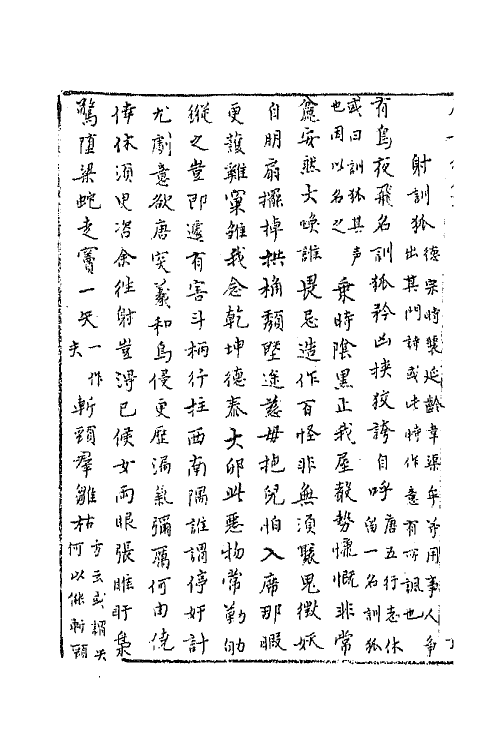 射訓狐 德宗時裴延齡韋渠牟等用事人爭出其門詩或此時作意有所諷也
有鳥夜飛名訓狐矜凶挾狡誇自呼 唐五行志休留一名訓狐
或曰訓狐其声也因以名之 乗時陰黑止我屋聲勢慷慨非常
麄安然大喚誰畏忌造作百怪非無須聚鬼徵妖
自朋扇擺掉栱桷頹墍途慈母抱兒怕入席那暇
更護雞窠雛我念乾坤德泰大卵此惡物常勤劬
縱之豈即遽有害斗柄行拄西南隅誰謂停奸計
尤劇意欲唐突羲和烏侵更歷漏氣彌厲何由僥
倖休須臾咨余往射豈淂已候女兩眼張睢盱梟
驚墮梁蛇走竇一矢 一作夫 斬頸羣雛枯 方云或謂矢何以能斬頸